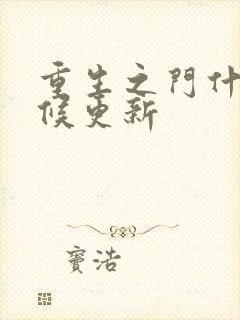 重生之門什
候更新
寶浩